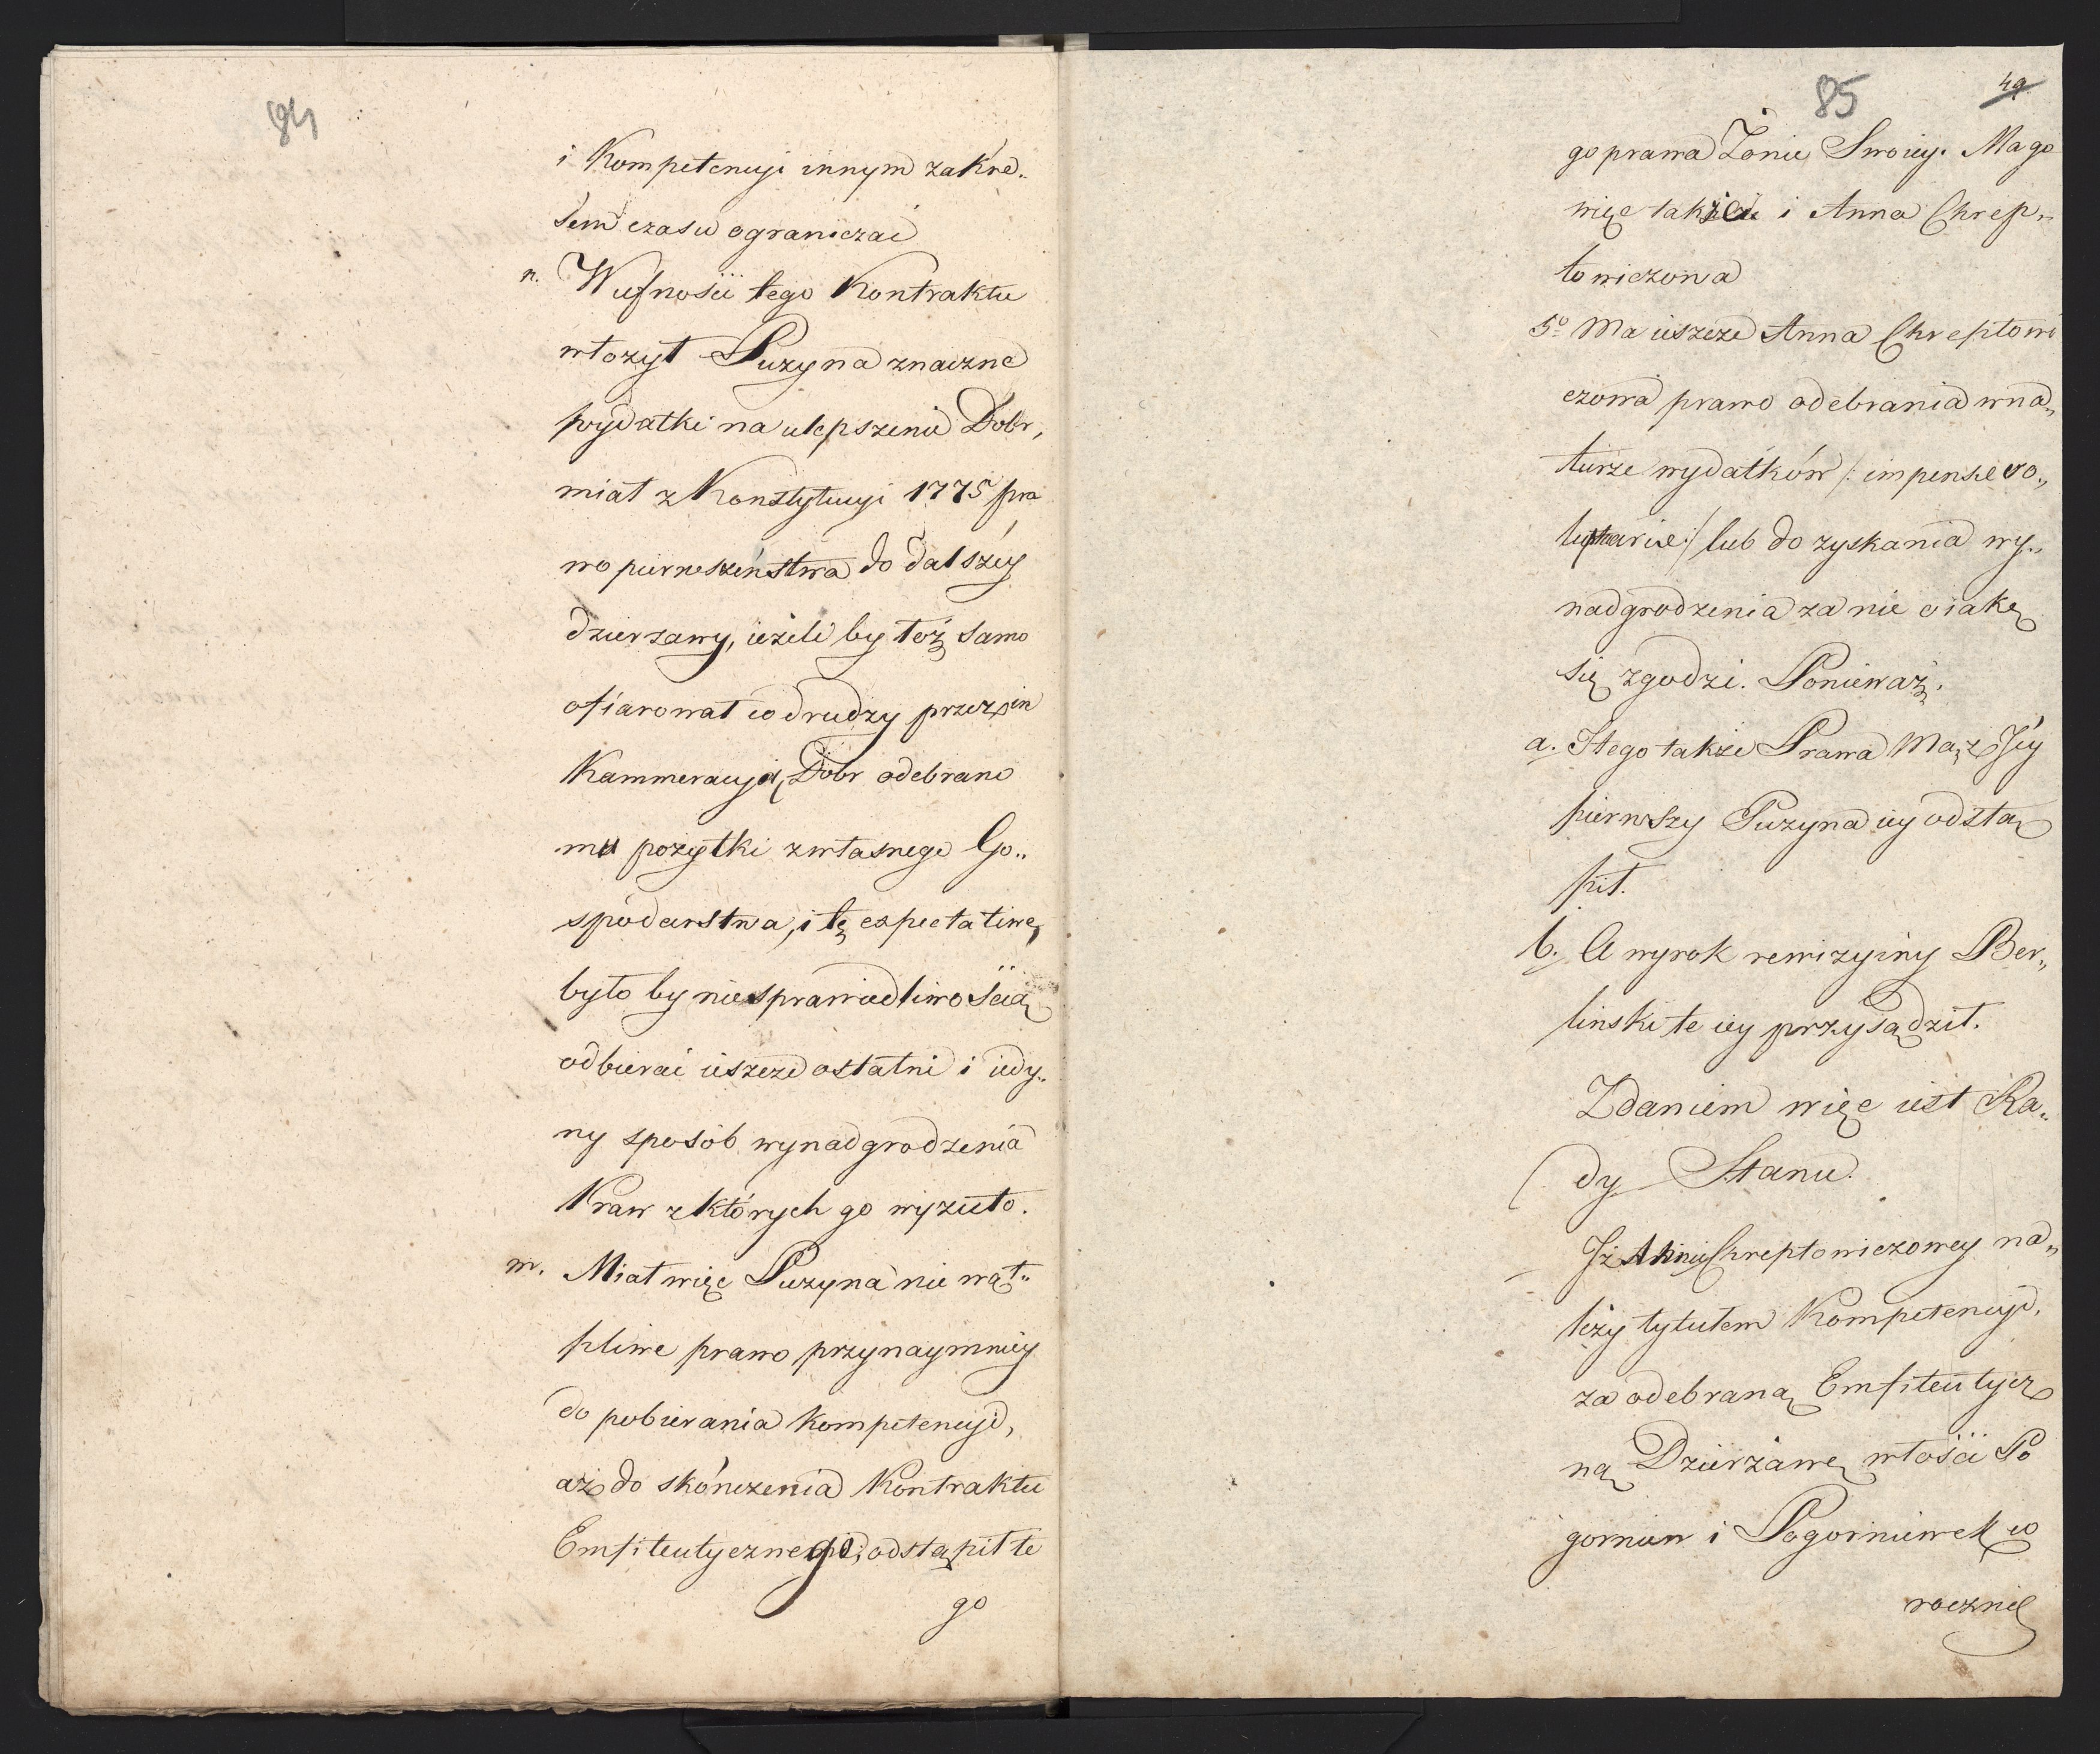 84
i Kompetencyi innym zakre„
sem czasu ograniczać
n. W ufności tego Kontraktu
włożył Puzyna znaczne
wydatki na ulepszenie Dobr,
miał z Konstytucyi 1775 pra
wo pierwszeństwa do dalszéy
dzierzawy, ieżeli by też samo
ofiarował co drudzy przez in
Kammeracyią Dobr odebrano
mu pożytki z własnego Go„
spodarstwa, i tę expectatiwę
było by niesprawiedliwością
odbierać ieszcze ostatni i iedy„
ny sposób wynadgrodzenia
Praw z których go wyzuto.
m. Miał więc Puzyna nie wąt„
pliwe prawo przynaymniéy
do pobierania Kompetencyi,
aż do skończenia Kontraktu
Emfiteutycznego; odstąpił te
go
85
49
go prawa Żonie Swoiéy. Ma go
więc także i Anna Chrep„
towiczowa
5o Ma ieszcze Anna Chreptowi
czowa prawo odebrania w na„
turze wydatków /: impensae vo„
luptuariae :/ lub do zyskania wy„
nadgrodzenia za nie o iakę
się zgodzi. Ponieważ.
a. I tego także Prawa Mąż Jéy
pierwszy Puzyna iéy odstą
pił.
b. A wyrok rewizyiny Ber„
linski te iéy przysądził.
Zdaniem więc iest Ra„
dy Stanu.
Iż Annie Chreptowiczowey na„
leży tytułem Kompetencyi,
za odebraną Emfiteutycz
ną Dzierżawę włości Po
gorniew i Pogorniewek co
rocznie